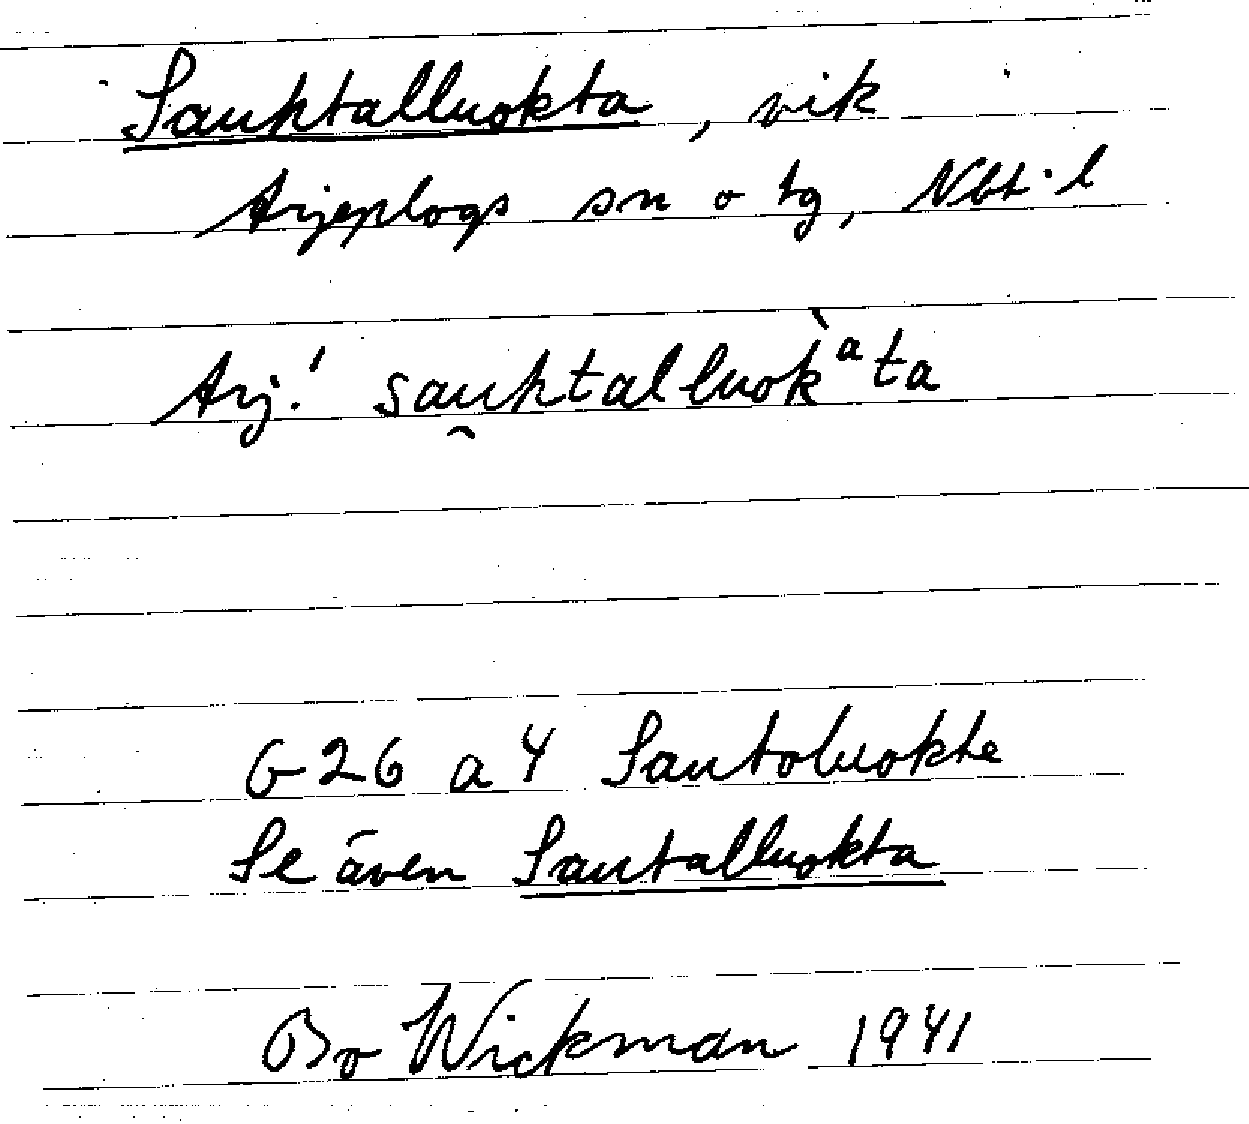 Sauhtalluokta, vik
Arjeplogs sn o tg, Nbt. l
Arj.! sau̯htalluok̀ᵃta
G 26 a 4 Sautoluokte
Se även Sautalluokta
Bo Wickman 1941